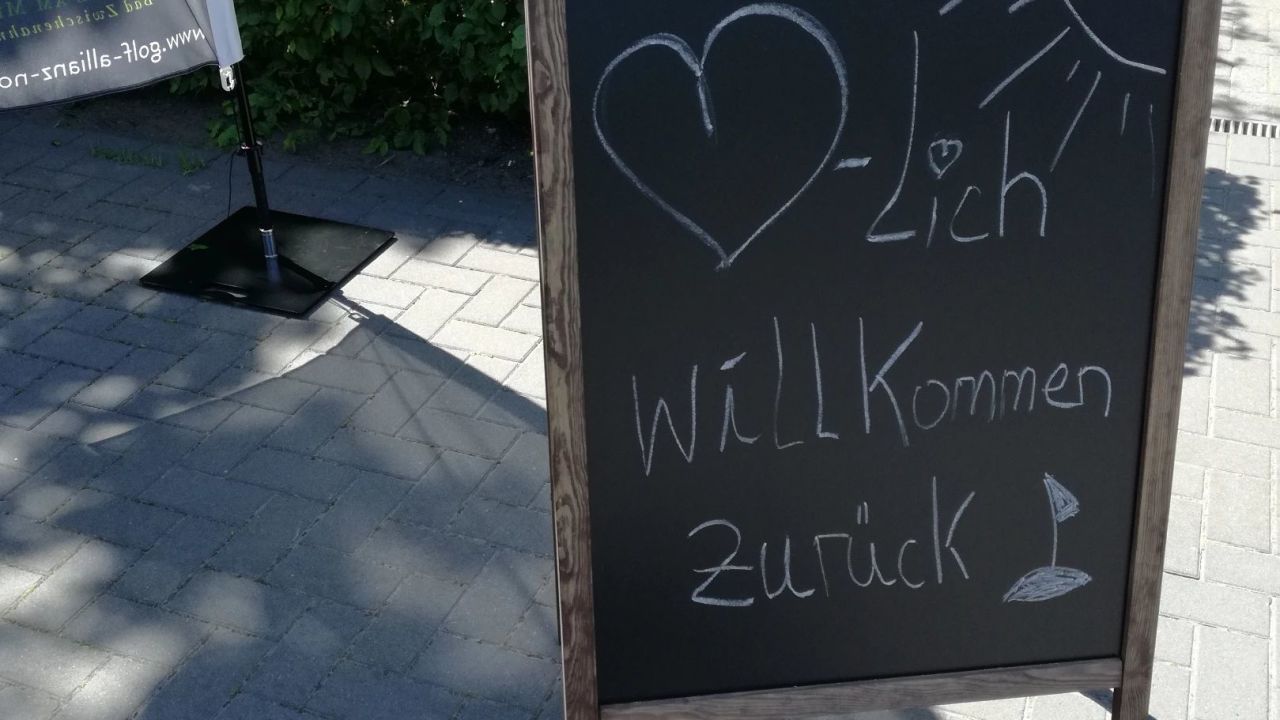 Bad Zwischenahn
www.golf-allianz-no
-Lich
Willkommen
zurück